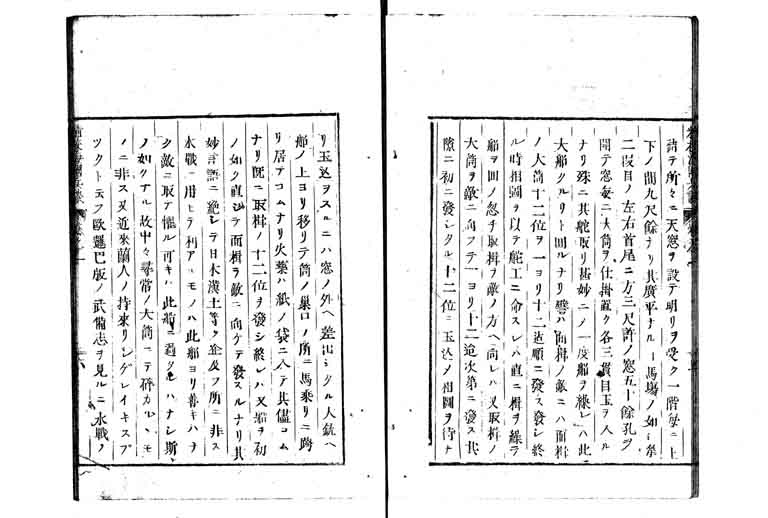 諸テ所々ニ天窓ヲ設テ明リヲ受ク一階每ニ上
下ノ間九尺餘ナリ其廣平ナルヿ馬場ノ如シ柴
二段目ノ左右首尾ニ方三尺許ノ窓五十餘孔ヲ
開テ窓每ニ大筒ヲ仕掛置ク各三貫目玉ヲ入ル
ナリ殊ニ其舵取リ甚妙ニノ一度舵ヲ繰レハ此
大船クルリト回ルナリ譬ハ面楫ノ敵ニハ面楫
ノ大筒十二位ヲ一ヨリ十二迄順ニ發ス發シ終
ル時相圖ヲ以テ舵工ニ命スレハ直ニ楫ヲ繰テ
船ヲ回ノ忽チ取楫ヲ敵ノ方ヘ向レハ又取楫ノ
大筒ヲ敵ニ向フテ一ヨリ十二迄次第ニ發ス其
隙ニ初ニ發シタル十二位ニ玉込ノ相圖ヲ待ナ
リ玉込ヲスルニハ窓ノ外ヘ差出シタル大銃ヘ
船ノ上ヨリ移リテ筒ノ巢口ノ所ニ馬乘リニ跨
リ居テコムナリ火藥ハ紙ノ袋ニ入テ其儘コム
ナリ既ニ取楫ノ十二位ヲ發シ終レハ又船ヲ初
ノ如ク直シテ面楫ヲ敵ニ向ケテ發スルナリ其
妙言語ニ絕レテ日本漢土等ノ企及フ所ニ非ス
水戰ニ用ヒテ利アルモノハ此船ヨリ善キハナ
ク敵ニ取ア懼ル可キハ此船ニ過タルハナシ斯
ノ如クナル故中々尋常ノ大筒ニテ碎カルヽモ
ノニ非ス又近來蘭人ノ持來リンゲレイキスブ
ックト云フ歐邏巴版ノ武備志ヲ見ルニ水戰ノ